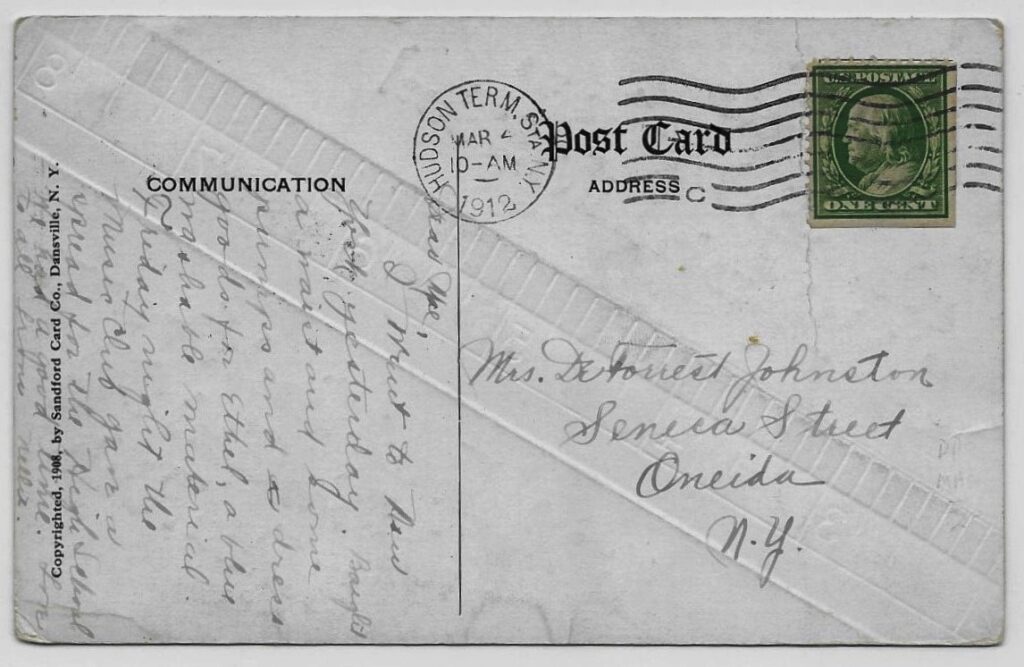 COMMUNICATION
Post Card
ADDRESS
HUDSON TERM. STA. N.Y.
MAR 4
10-AM
1912
C
U.S. POSTAGE
ONE CENT
Mrs. DeForrest Johnston
Seneca Street
Oneida
N.Y.
Dear
I went to New
York yesterday. Bought
a waist and some
pumps and a dress
goods for Ethel, a blue
washable material.
Friday night the
Muses Club gave a
for the High School
We had a good time.
to all from Nellie.
Copyrighted, 1908, by Sandford Card Co., Dansville, N. Y.